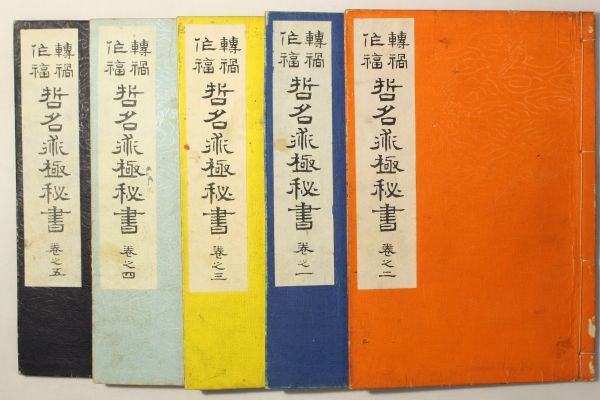 轉禍
作福
哲名術極秘書
卷之二
轉禍
作福
哲名術極秘書
卷之一
轉禍
作福
哲名術極秘書
卷之三
轉禍
作福
哲名術極秘書
卷之四
轉禍
作福
哲名術極秘書
卷之五